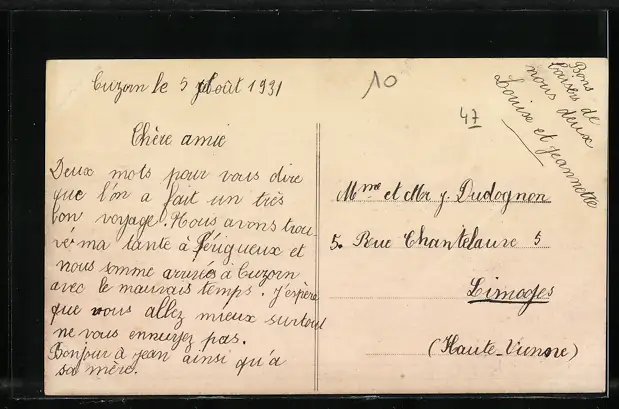 Cuzorn le 5 Août 1931
10
47
Bons
baisers de
nous deux
Louise et Jeannette
Chère amie
Deux mots pour vous dire
que l'on a fait un très
bon voyage. Nous avons trou-
vé ma tante à Périgueux et
nous somme arrivés à Cuzorn
avec le mauvais temps. J'espère
que vous allez mieux surtout
ne vous ennuyez pas.
Bonjour à jean ainsi qu'à
sa mère.
Mme et Mr J. Dudognon
5. Rue Chantelauve 5
Limoges
(Haute-Vienne)